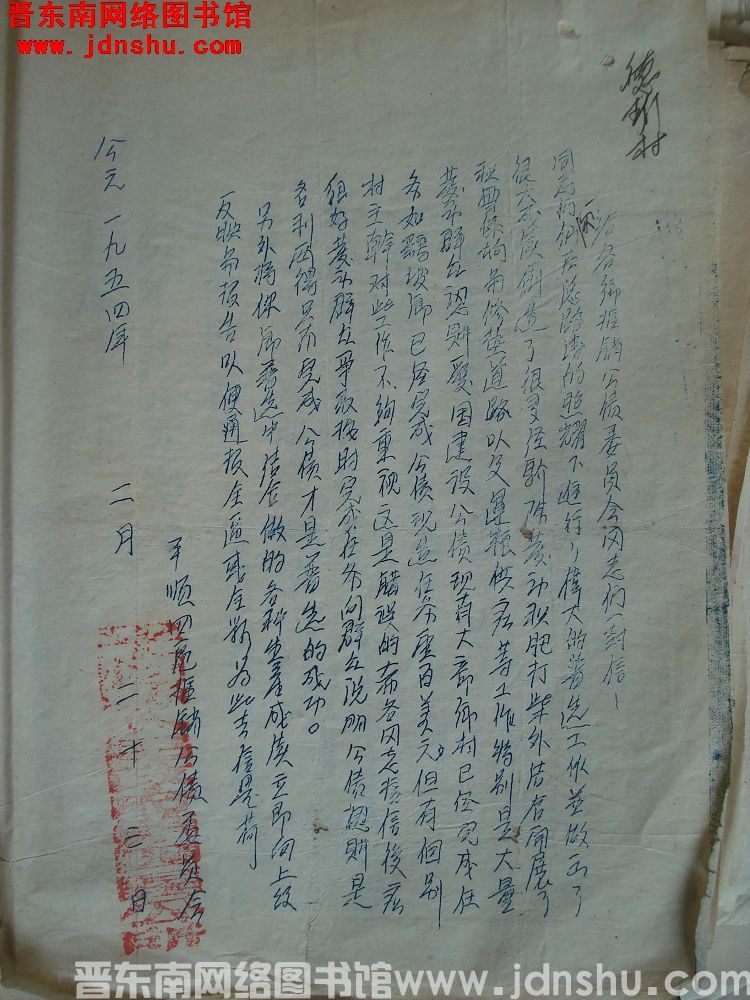 晋东南网络图书馆
www.jdnshu.com
德 村
给各乡推销公债委员会同志们一封信
同志们在总路线的照耀下进行了伟大的普选工作并做出了
很大成绩创造了很多经验除发动积肥打柴外结合开展了
积肥保垧和修垫道路以及运粮供应等工作特别是大量
发动群众认购爱国建设公债现有大部乡村已经完成任
务如 坡乡已经完成公债 但有个别
村主干对此工作不够重视这是错误的希各同志接信后应
很好发动群众争取按时完成任务向群众说明公债认购是
各利两得只有完成公债才是普选的成功。
另外将你乡普选中结合做的各种生产成绩立即向上级
反映和报告以便通报全区或全县为此专信是荷
平顺四区推销公债委员会
公元一九五四年 二月 二十三日
晋东南网络图书馆www.jdnshu.com